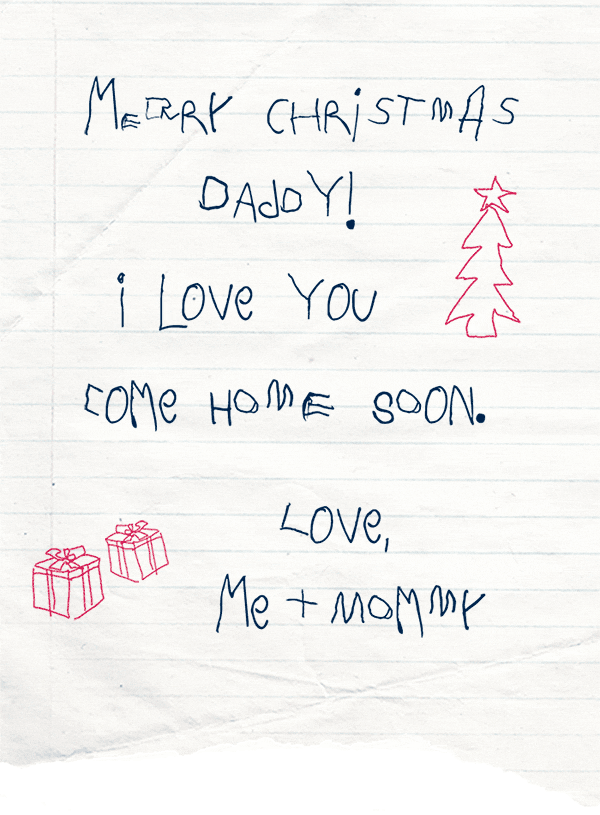 MeRRY CHRiSTMAS
DADDY!
i LOVe YOU
COMe HOME SOON.
LOVe,
Me + MOMMY